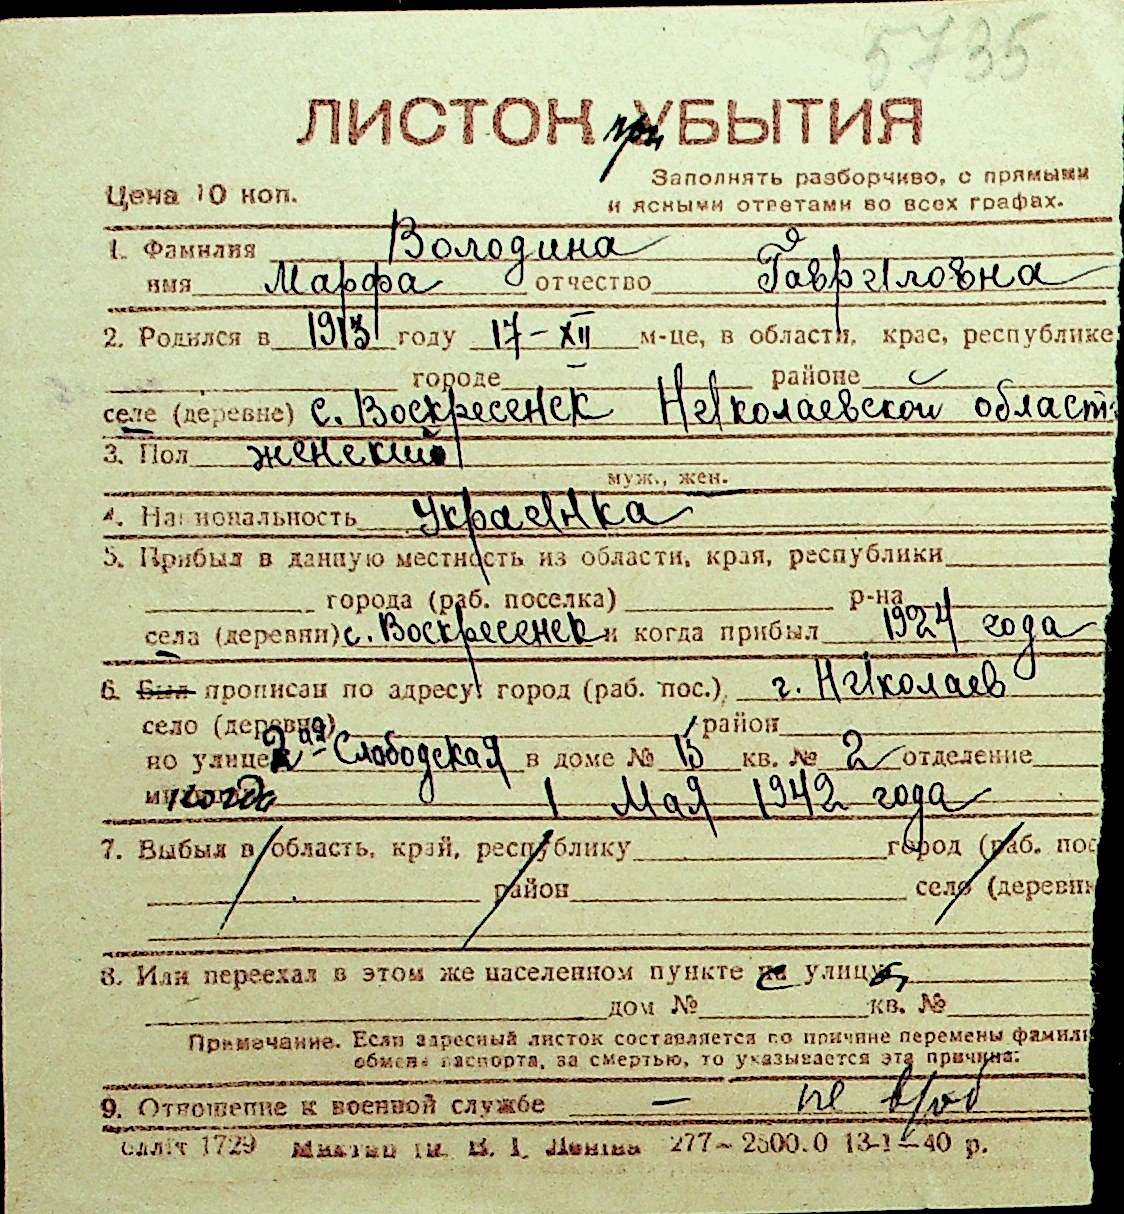 5735
ЛИСТОК при УБЫТИЯ
Цена 10 коп.
Заполнять разборчиво, с прямыми
и ясными ответами во всех графах.
1. Фамилия Володина
имя Марфа отчество Гавриловна
2. Родился в 1913 году 17-XII м-це, в области, крае, республике
городе районе
селе (деревне) с. Воскресенск Николаевской област
3. Пол женский
муж., жен.
4. Национальность Украинка
5. Прибыл в данную местность из области, края, республики
города (раб. поселка) р-на
села (деревни) с. Воскресенск и когда прибыл 1924 года
6. Был прописан по адресу: город (раб. пос.) г. Николаев
село (деревню) район
по улице 2ая Слободская в доме № 15 кв. № 2 отделение
когда 1 Мая 1942 года
7. Выбыл в область, край, республику город (раб. пос
район село (деревни
8. Или переехал в этом же населенном пункте с улицы
дом № кв. №
Примечание. Если адресный листок составляется по причине перемены фамили
обмена паспорта, за смертью, то указывается эта причина:
9. Отношение к военной службе —
1729 В. І. Леніна 277-2500.0 13-1-40 р.